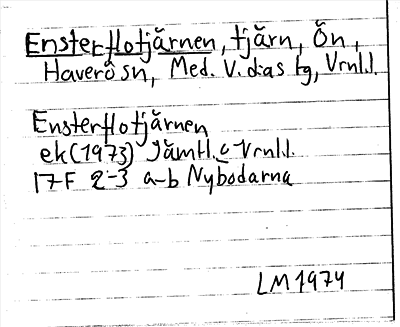 Ensterflotjärnen, tjärn, Ön,
Haverö sn, Med. V. d:as tg, Vrnl.l.
Ensterflotjärnen
ek (1973) Jämtl. o Vrnl.l.
17F 2-3 a-b Nybodarna
LM 1974